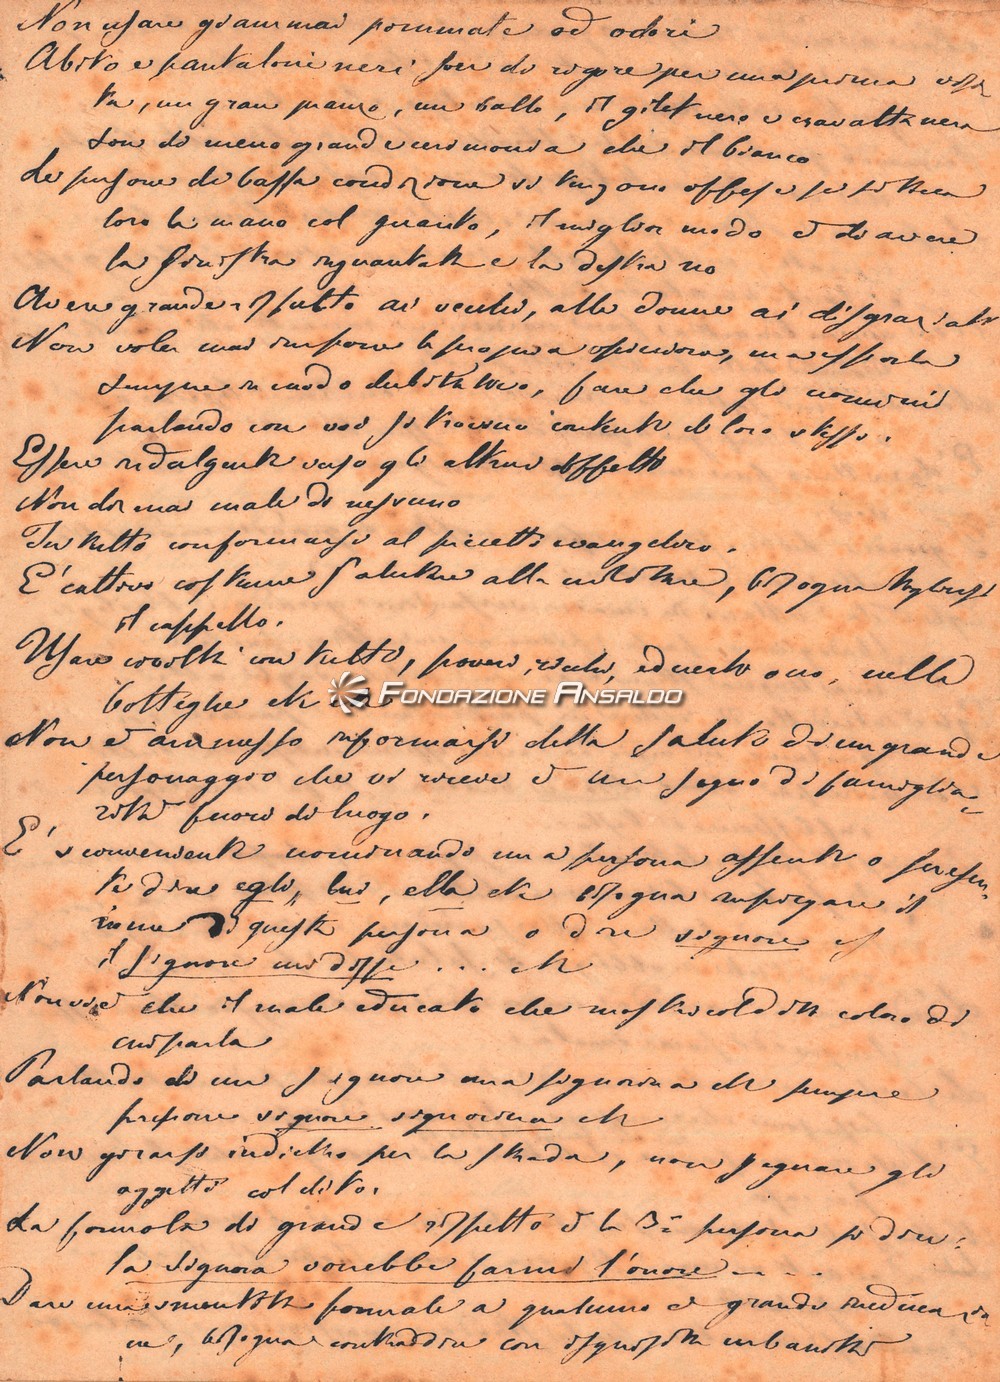 Non usare giammai pommate od odori
Abito e pantaloni neri son di rigore per una prima visi
ta, un gran pranzo, un ballo, il gilet nero e cravatta nera
son di meno grande cerimonia che il bianco
Le persone di bassa condizione si tengono offese se si tocca
loro la mano col guanto, il miglior modo è di avere
la sinistra inguantata e la destra no
Avere grande rispetto ai vecchi, alle donne ai disgraziati
Non voler mai imporre la propria opinione, ma esporla
sempre in modo dubitativo, fare che gli uomini
parlando con voi si trovino contenti di loro stessi.
Essere indulgente verso gli altrui difetti
Non dir mai male di nessuno
In tutto conformarsi ai precetti evangelici.
E' cattivo costume salutare alla militare, bisogna togliersi
il cappello.
Usare con tutti, poveri, ricchi, educati o no, nelle
botteghe etc etc
FONDAZIONE ANSALDO
Non è ammesso informarsi della salute di un grande
personaggio che vi riceve è un segno di famiglia=
rità fuori di luogo.
E' sconveniente nominando una persona assente o presen-
te dire egli, lui, ella etc bisogna impiegare il
nome di questa persona o dire signore
il signore mi disse ... etc
Non vi è che il male educato che mostri col dito coloro di
cui parla
Parlando di un signore una signorina etc sempre
preporre signore signorina etc
Non girarsi indietro per la strada, non segnare gli
oggetti col dito.
La formola di grande rispetto è la 3a persona si dice:
la signora vorrebbe farmi l'onore ....
Dare una smentita formale a qualcuno è grande ineducazio
ne, bisogna contraddire con isquisita urbanità